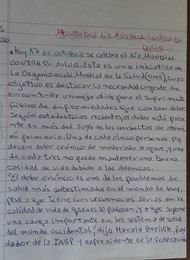 17 OCTUBRE DIA MUNDIAL CONTRA EL
DOLOR
• Hoy 17 de octubre se celebra el día Mundial
contra el dolor. Esta es una iniciativa de
La Organización Mundial de la Salud (OMS), cuyo
objetivo es destacar la necesidad urgente de
encontrar un mejor alivio para el sufrimiento
físico de enfermedades que causan dolor
según estadísticas recientes, el dolor está presente
en más del 50% de las consultas de atención
primaria. Una de cada cinco personas, padecen
dolor crónico de moderado a grave, y una
de cada tres no puede mantener una buena
calidad de vida debido a las dolencias.
"El dolor crónico es uno de los problemas de
salud más subestimados en el mundo de hoy,
pese a que tiene consecuencias serias en la
calidad de vida de quienes lo padecen, y a que supone
una carga importante en los sistemas de salud
del mundo occidental", dijo Harald Breivik, fun
dador de la IASP y expresidente de la Federación